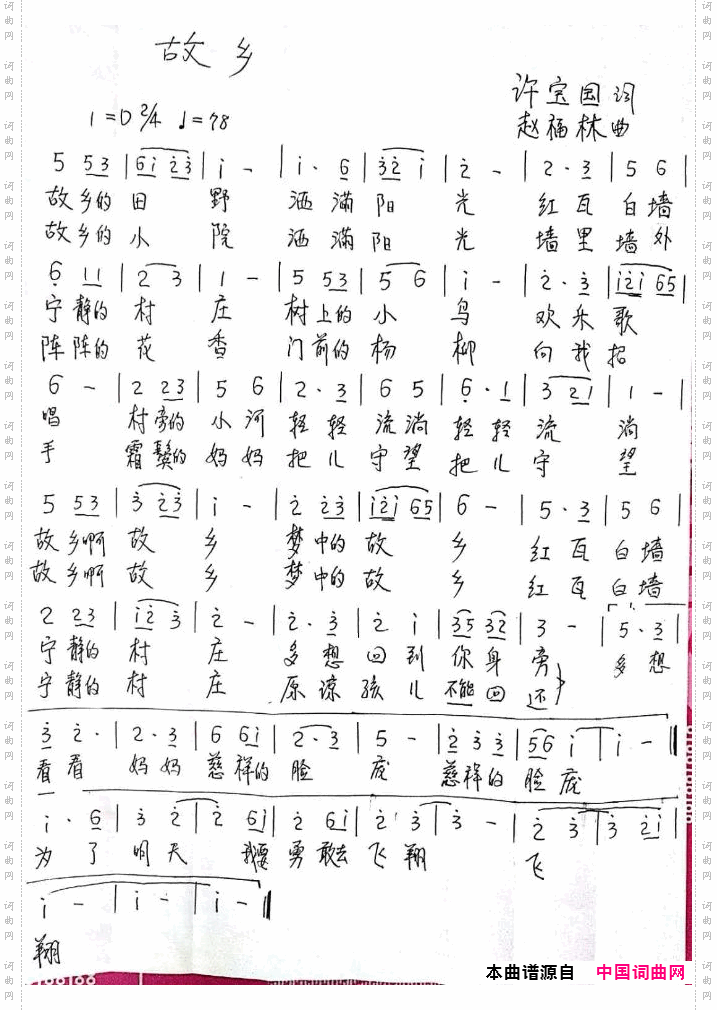 故乡
许宝国 词
1=D 2/4 ♩=78
赵福林 曲
5 5 3 | 6 i 2 3 | i - | i · 6 | 3 2 i | 2 - | 2 · 3 | 5 6 |
故乡的 田 野 洒 满 阳 光 红 瓦 白 墙
故乡的 小 院 洒 满 阳 光 墙 里 墙 外
6 1 1 | 2 3 | 1 - | 5 5 3 | 5 6 | i - | 2 · 3 | i 2 i 6 5 |
宁 静的 村 庄 树 上的 小 鸟 欢 乐 歌
阵 阵的 花 香 门 前的 杨 柳 向 我 招
6 - | 2 2 3 | 5 6 | 2 · 3 | 6 5 | 6 · 1 | 3 2 1 | 1 - |
唱 村旁的 小 河 轻 轻 流 淌 轻 轻 流 淌
手 霜鬓的 妈 妈 把 儿 守 望 把 儿 守 望
5 5 3 | 3 2 3 | i - | 2 2 3 | i 2 i 6 5 | 6 - | 5 · 3 | 5 6 |
故 乡啊 故 乡 梦 中的 故 乡 红 瓦 白 墙
故 乡啊 故 乡 梦 中的 故 乡 红 瓦 白 墙
2 2 3 | i 2 3 | 2 - | 2 · 3 | 2 i | 3 5 3 2 | 3 - | 5 · 3 |
宁 静的 村 庄 多 想 回 到 你 身 旁 多 想
宁 静的 村 庄 原 谅 孩 儿 不能 回 还
3 2 · | 2 · 3 | 6 6 i | 2 · 3 | 5 - | 2 3 3 | 5 6 i | i - ‖
看 看 妈 妈 慈 祥的 脸 庞 慈 祥的 脸 庞
i · 6 | 3 2 | 2 6 i | 2 6 i | 2 3 | 3 - | 2 3 | 3 2 i |
为 了 明 天 我要 勇 敢去 飞 翔 飞
i - | i - | i - ‖
翔
本曲谱源自 中国词曲网
词曲网